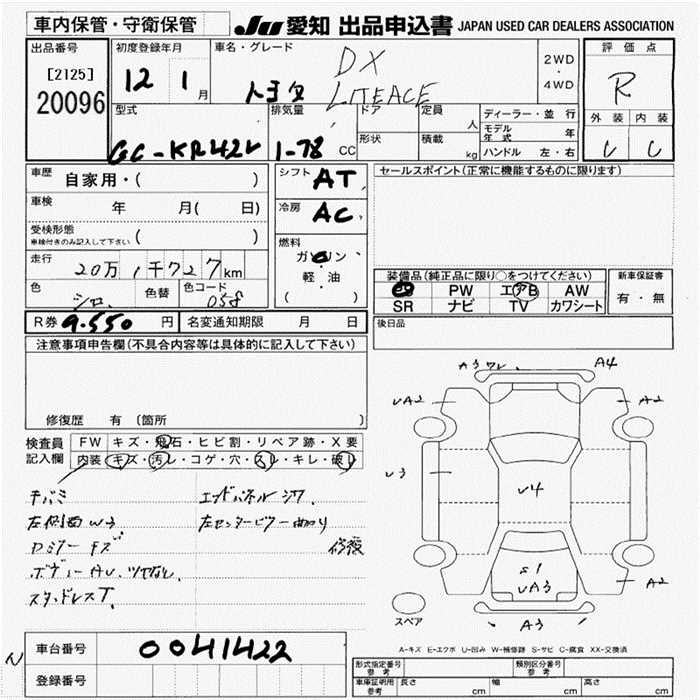 車内保管・守衛保管
JU 愛知 出品申込書 JAPAN USED CAR DEALERS ASSOCIATION
出品番号
[2125]
20096
初度登録年月
12 1月
車名・グレード
トヨタ
DX
LITEACE
2WD
・
4WD
評価点
R
外装 内装
型式
GC-KR42V
排気量
1-78 CC
ドア
形状
定員
人
積載
kg
ディーラー・並行
モデル年式 年
ハンドル 左・右
車歴
自家用・( )
車検
年 月( 日)
受検形態
車検付きのみ記入して下さい ( )
走行
20万1千727km
色
シロ
色替
色コード
058
シフト AT
冷房 AC
燃料
ガソリン
軽・油
( )
セールスポイント(正常に機能するものに限ります)
装備品(純正品に限り○をつけてください)
PS PW エアB AW
SR ナビ TV カワシート
新車保証書
有・無
R券 9.550 円
名変通知期限 月 日
後日品
注意事項申告欄(不具合内容等は具体的に記入して下さい)
修復歴 有 〔箇所 〕
検査員
記入欄
FW キズ・飛石・ヒビ割・リペア跡・X要
内装 キズ・汚レ・コゲ・穴・スレ・キレ・破レ
左側面 W3
ボディー AU、ツヤなし
スタッドレスT
左センターピラー曲り
修復
A3 A4
UA2 A2
U3
U4
S1
UA3
A2
A3
スペア
A-キズ E-エクボ U-凹み W-補修跡 S-サビ C-腐食 XX-交換済
N
車台番号 0041422
登録番号
形式指定番号
参考
類別区分番号
参考
車庫証明用
参考
長さ cm 幅 cm 高さ cm